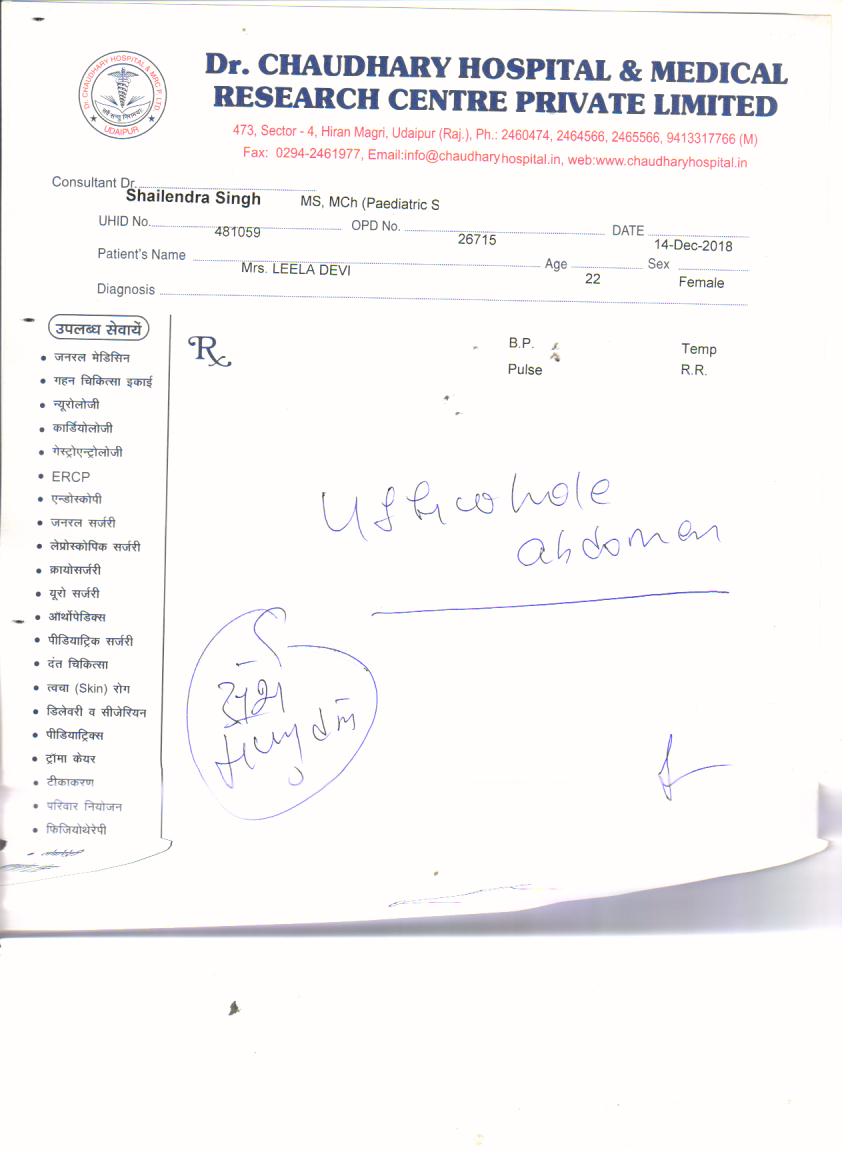 Dr. CHAUDHARY HOSPITAL & MEDICAL
RESEARCH CENTRE PRIVATE LIMITED
473, Sector - 4, Hiran Magri, Udaipur (Raj.), Ph.: 2460474, 2464566, 2465566, 9413317766 (M)
Fax: 0294-2461977, Email:info@chaudharyhospital.in, web:www.chaudharyhospital.in
Dr. CHAUDHARY HOSPITAL & MRC P. LTD
UDAIPUR
Consultant Dr.
Shailendra Singh MS, MCh (Paediatric S
UHID No. 481059 OPD No. 26715 DATE 14-Dec-2018
Patient's Name Mrs. LEELA DEVI Age 22 Sex Female
Diagnosis
उपलब्ध सेवायें
• जनरल मेडिसिन
• गहन चिकित्सा इकाई
• न्यूरोलोजी
• कार्डियोलोजी
• गेस्ट्रोएन्ट्रोलोजी
• ERCP
• एन्डोस्कोपी
• जनरल सर्जरी
• लेप्रोस्कोपिक सर्जरी
• क्रायोसर्जरी
• यूरो सर्जरी
• ऑर्थोपेडिक्स
• पीडियाट्रिक सर्जरी
• दंत चिकित्सा
• त्वचा (Skin) रोग
• डिलेवरी व सीजेरियन
• पीडियाट्रिक्स
• ट्रॉमा केयर
• टीकाकरण
• परिवार नियोजन
• फिजियोथेरेपी
Rx
B.P. Temp
Pulse R.R.
whole
abdomen